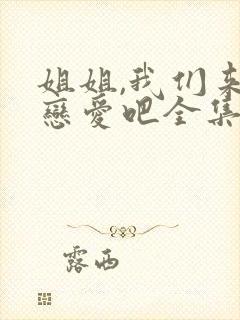 姐姐,我们来
戀愛吧全集
露西